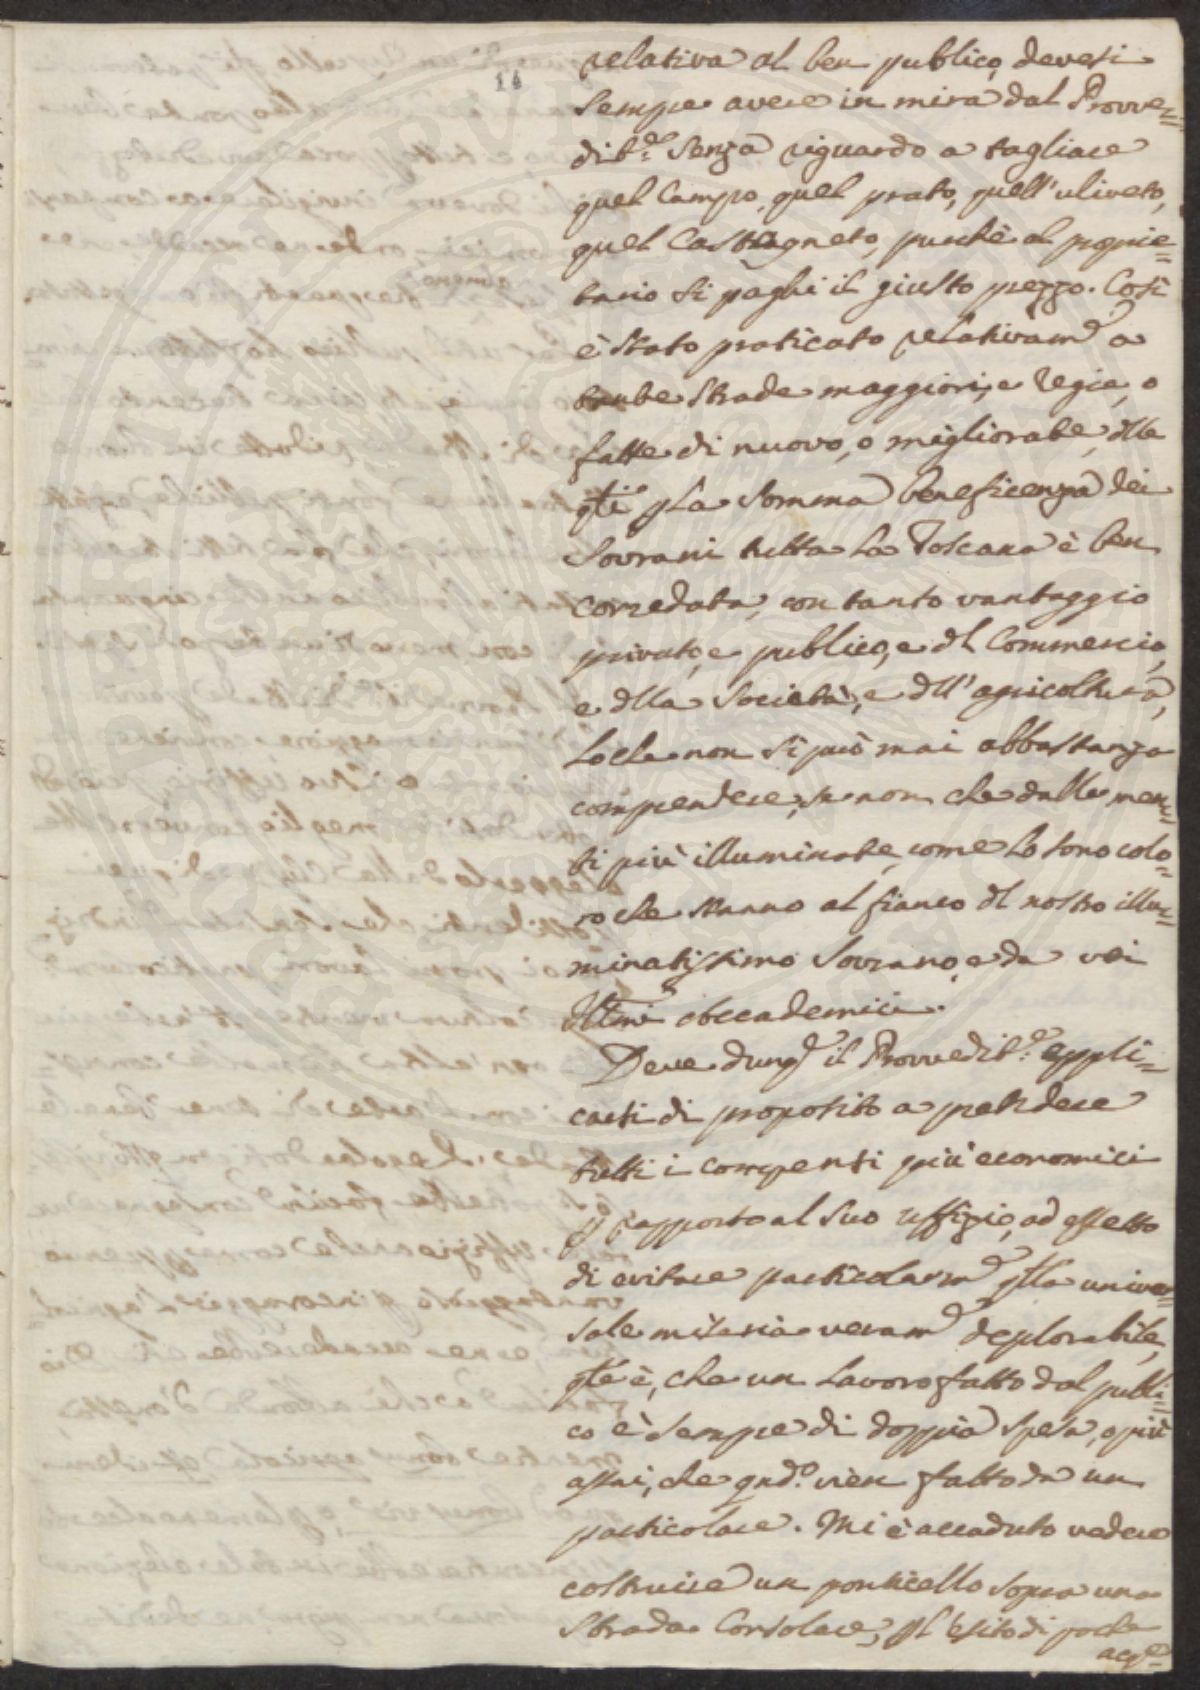 14
relativa al ben publico, devesi
sempre avere in mira dal Provve=
dit.re senza riguardo a tagliare
quel Campo, quel prato, quell'uliveto,
quel Castagneto, purchè al proprie=
tario si paghi il giusto prezzo. Così
è stato praticato relativam.e a
tante strade maggiori, e regie, o
fatte di nuovo, o migliorate, dlle
qli p la somma beneficenza dei
Sovrani tutta la Toscana è ben
corredata, con tanto vantaggio
privato, e publico, e dl Commercio,
e dlla Società, e dll'agricoltura,
loche non si può mai abbastanza
comprendere, se non che dalle men=
ti più illuminate, come lo sono colo=
ro che stanno al fianco dl nostro illu=
minatissimo Sovrano, e da voi
Illmi Accademici.
Deve dunq.e il Provvedit.re appli=
carsi di proposito a prendere
tutti i compensi più economici
p rapporto al suo uffizio, ad effetto
di evitare particolarm.e qlla univer=
sale miseria veram.e deplorabile,
qle è, che un lavoro fatto dal publi=
co è sempre di doppia spesa, o più
assai, che qnd.o vien fatto da un
particolare. Mi è accaduto vedere
costruire un ponticello sopra una
Strada Consolare, pl'esito di poche
acq.e